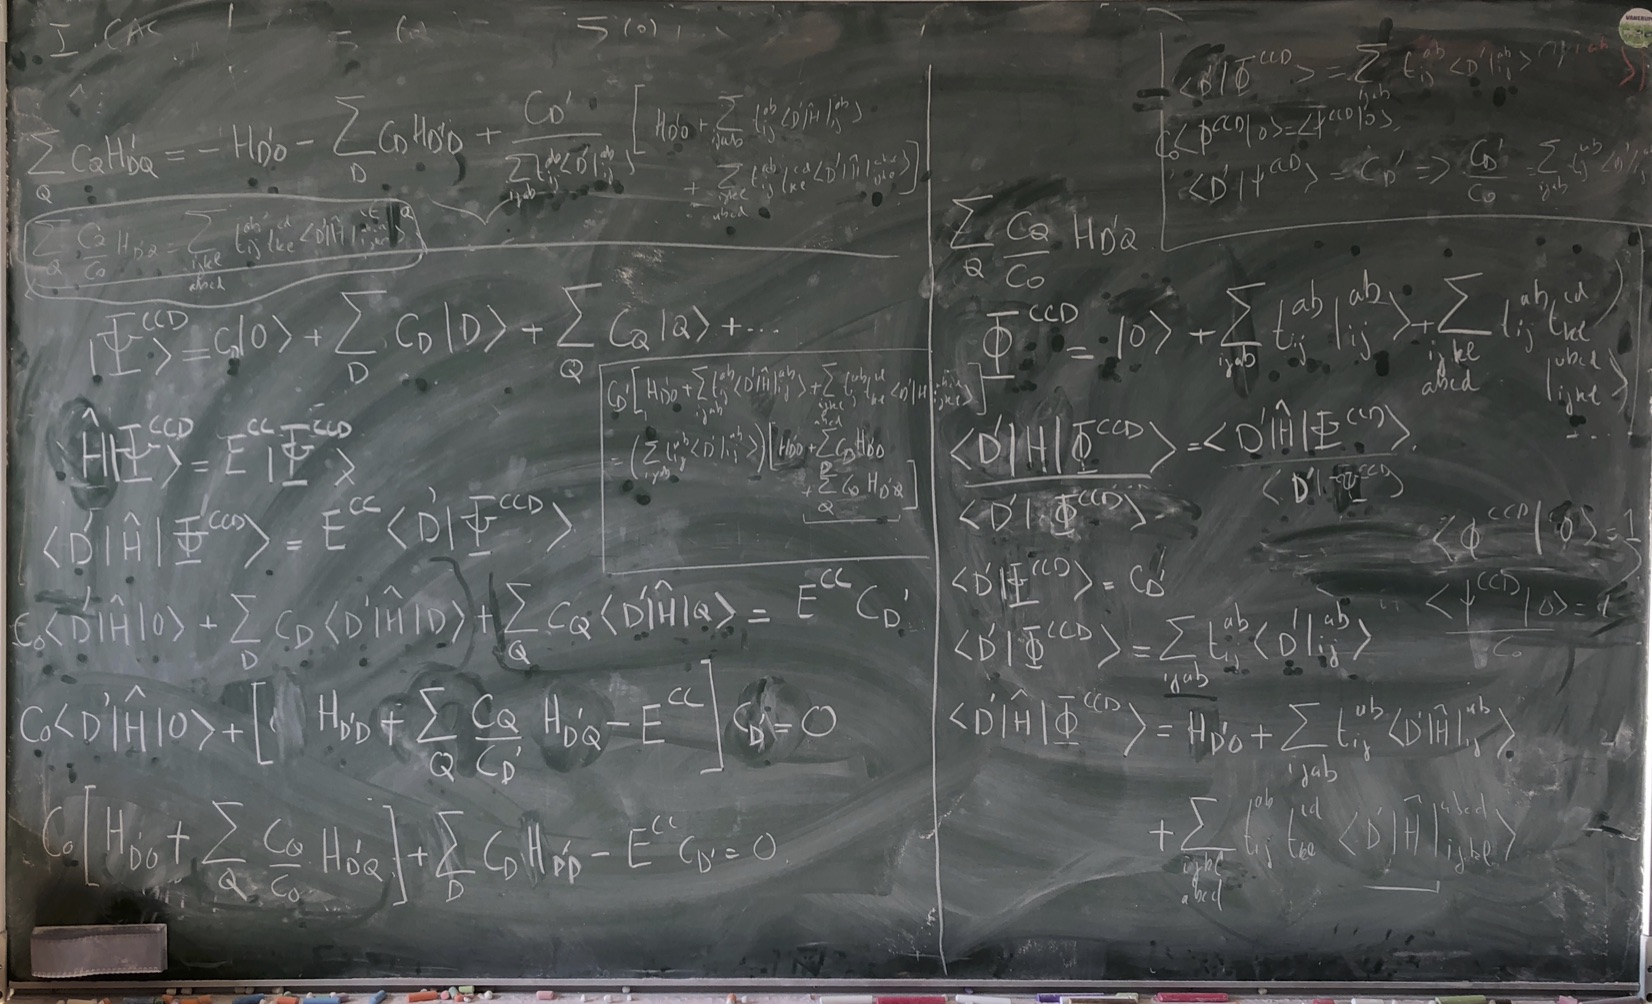 I. CAC
Σ_Q C_Q H_D'Q = - H_D'0 - Σ_D C_D H_D'D + C_D' / (Σ_ijab t_ij^ab <D'|_ij^ab>) [ H_D'0 + Σ_ijab t_ij^ab <D'|Ĥ|_ij^ab>
+ Σ_ijkl abcd t_ij^ab t_kl^cd <D'|Ĥ|_ijkl^abcd> ]
Σ_Q C_Q/C_0 H_D'Q = Σ_ijkl abcd t_ij^ab t_kl^cd <D'|Ĥ|
|Ψ^CCD> = C_0|0> + Σ_D C_D |D> + Σ_Q C_Q |Q> + ...
Ĥ|Ψ^CCD> = E^CC |Ψ^CCD>
<D'|Ĥ|Ψ^CCD> = E^CC <D'|Ψ^CCD>
C_D' [ H_D'0 + Σ_ijab t_ij^ab <D'|Ĥ|_ij^ab> + Σ_ijkl abcd t_ij^ab t_kl^cd <D'|H|_ijkl^abcd> ]
= ( Σ_ijab t_ij^ab <D'|_ij^ab> ) [ H_D'0 + Σ_D C_D H_D'D
+ Σ_Q C_Q H_D'Q ]
C_0 <D'|Ĥ|0> + Σ_D C_D <D'|Ĥ|D> + Σ_Q C_Q <D'|Ĥ|Q> = E^CC C_D'
C_0 <D'|Ĥ|0> + [ H_D'D + Σ_Q C_Q/C_D' H_D'Q - E^CC ] C_D' = 0
C_0 [ H_D'0 + Σ_Q C_Q/C_0 H_D'Q ] + Σ_D C_D H_D'D - E^CC C_D' = 0.
<D'|Φ^CCD> = Σ_ijab t_ij^ab <D'|_ij^ab>
C_0 <Φ^CCD|0> = <Ψ^CCD|0>,
<D'|Ψ^CCD> = C_D' => C_D'/C_0 = Σ_ijab t_ij^ab <D'|
Σ_Q C_Q/C_0 H_D'Q
Φ^CCD = |0> + Σ_ijab t_ij^ab |_ij^ab> + Σ_ijkl abcd t_ij^ab t_kl^cd |_ijkl^abcd>
...
<D'|H|Φ^CCD> / <D'|Φ^CCD> = <D'|Ĥ|Ψ^CCD> / <D'|Ψ^CCD>
<Φ^CCD|0> = 1
<D'|Ψ^CCD> = C_D'
<Ψ^CCD|0> / C_0 = 1
<D'|Φ^CCD> = Σ_ijab t_ij^ab <D'|_ij^ab>
<D'|Ĥ|Φ^CCD> = H_D'0 + Σ_ijab t_ij^ab <D'|Ĥ|_ij^ab>
+ Σ_ijkl abcd t_ij^ab t_kl^cd <D'|Ĥ|_ijkl^abcd>